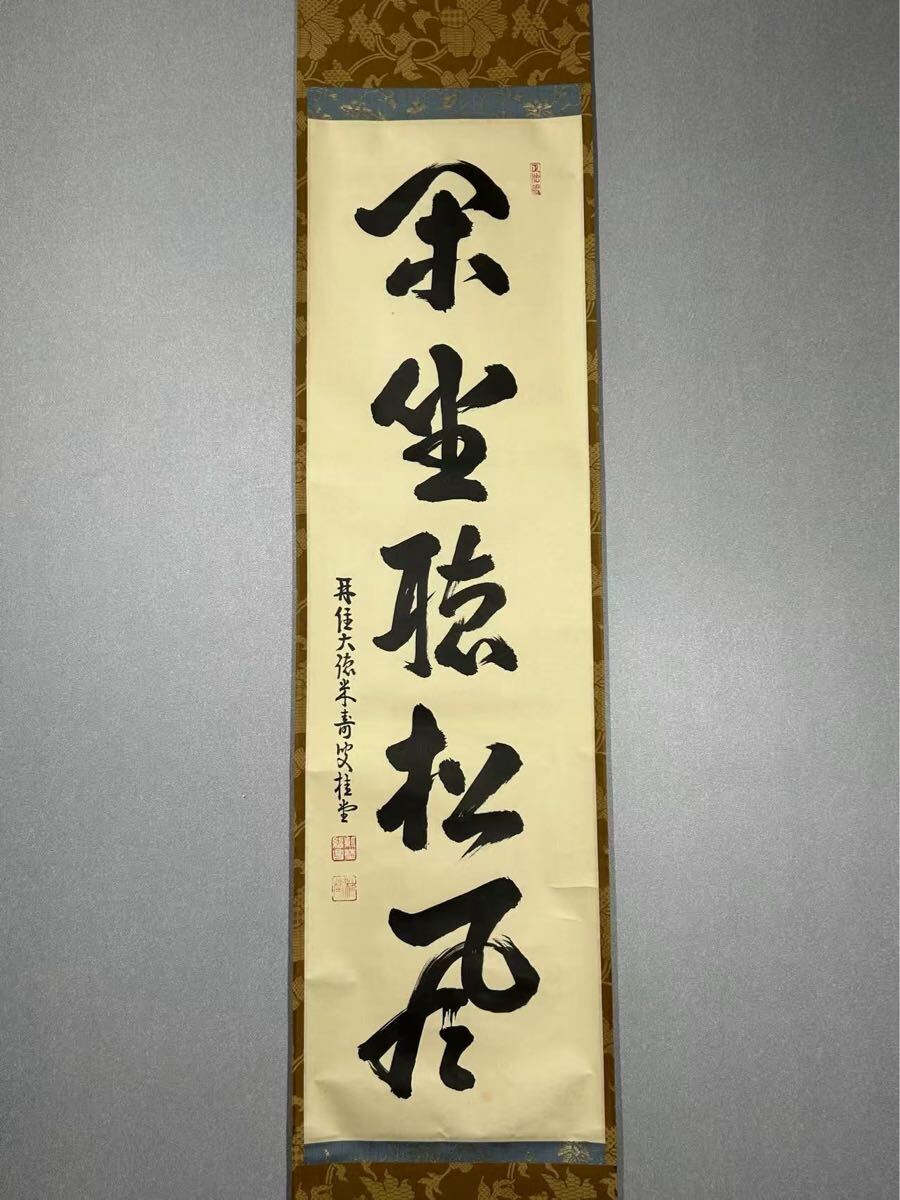 閑坐聴松風
再住大徳米寿叟桂堂